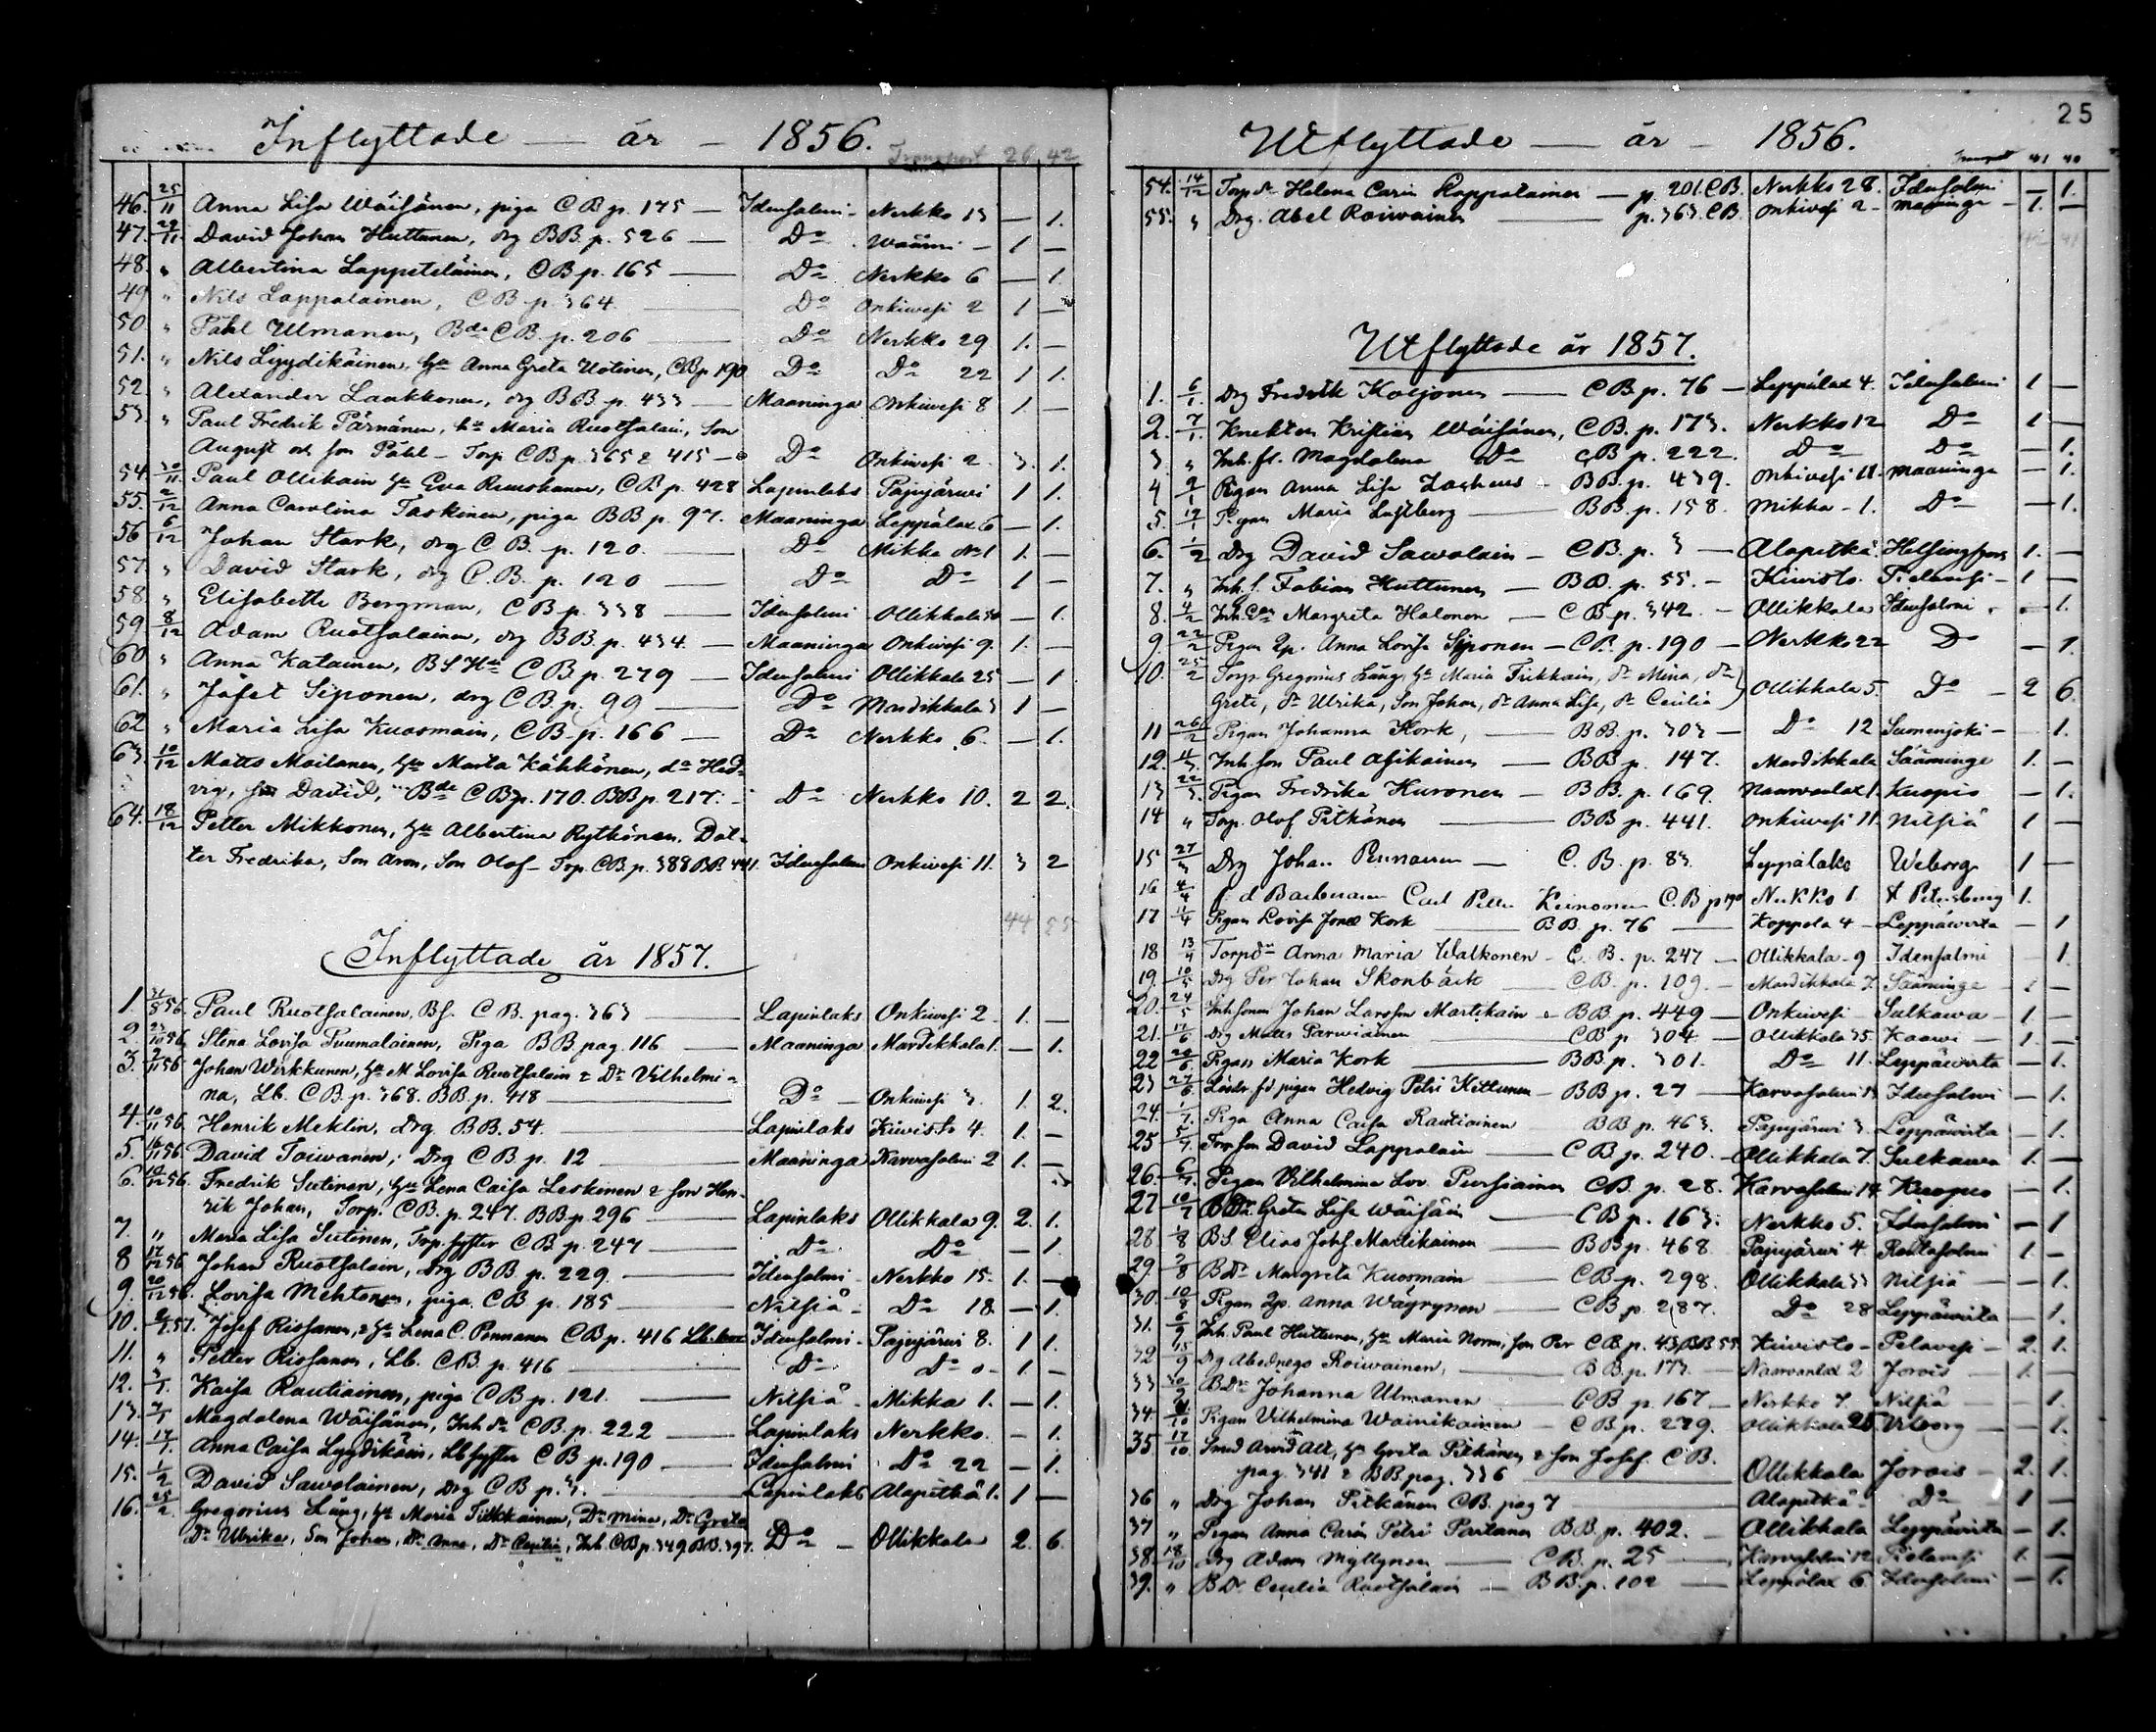 Inflyttade — år — 1856.
Transport 26 42
46. 25/11 Anna Lisa Wäisänen, piga CB p. 175 — Idensalmi - Nerkko 13 — 1.
47. 27/11 David Johan Huttunen, drg BB. p. 526 — Do - 1 —
48. " Albertina Lappeteläinen, CB p. 165 — Do Nerkko 6 — 1.
49 " Nils Lappalainen, CB p. 364 Do Onkiwesi 2 1 —
50. " Påhl Ulmanen, Bde CB. p. 206 — Do Nerkko 29 1. —
51. " Nils Lyydikäinen, Hu Anna Greta Uotinen, CB p 190 Do Do 22 1 1.
52 " Alexander Laukkonen, drg BB p. 433 — Maaninga Onkiwesi 8 1. —
53. " Paul Fredrik Pärnänen, hu Maria Ruotsalain, Son
August och son Påhl — Torp CB p. 365 & 415 — Do Onkiwesi 2 3. 1.
54. 30/11 Paul Ollikain Hu Eva Ruuskanen, CB p. 428 Lapinlaks Pajujärwi 1 1.
55. 2/12 Anna Carolina Taskinen, piga BB p. 97. Maaninga Leppälax 6 — 1.
56 6/12 Johan Stark, drg CB. p. 120. — Do Mikka No 1 1. —
57. " David Stark, drg C.B. p. 120 — Do Do 1 —
58. " Elisabeth Bergman, CB p. 338 — Idensalmi Ollikkala 30 — 1.
59 8/12 Adam Ruotsalainen, drg BB. p. 434. — Maaninga Onkiwesi 9. 1. —
60 " Anna Katainen, BSHu CB p. 279 — Idensalmi Ollikkala 25 — 1
61. " Jöfet Siponen, drg CB p. 99 — Do Mardikkala 3 1 —
62 " Maria Lisa Kuosmain, CB p. 166 — Do Nerkko 6. — 1.
63. 10/12 Matts Moilanen, Hu Marta Kähkönen, dr Hed-
vig, son David, Bde CB p. 170. BB p. 217. - Do Nerkko 10. 2 2.
64. 18/12 Petter Mikkonen, Hu Albertina Rytkönen, Dot-
ter Fredrika, Son Aron, Son Olof — Torp. CB. p. 388 BB. 441. Idensalmi Onkiwesi 11. 3 2
44 55
Inflyttade år 1857.
1. 31/8 56. Paul Ruotsalainen, Bs. CB. pag. 363 — Lapinlaks Onkiwesi 2. 1. —
2. 23/10 56 Stina Lovisa Tuumalainen, Piga BB pag. 116 — Maaninga Mardikkala 1. — 1.
3. 7/11 56 Johan Wirkkunen, Hu M Lovisa Ruotsalain & Dr Vilhelmi-
na, Lb. CB. p. 368. BB. p. 418 — Do — Onkiwesi 3. 1. 2.
4. 10/11 56. Henrik Meklin, Drg BB. 54. — Lapinlaks Kiwisto 4. 1. —
5. 16/11 56. David Toiwanen, Drg CB. p. 12 — Maaninga Karvasalmi 2 1. —
6. 10/12 56. Fredrik Sutinen, Hu Lena Caisa Leskinen & son Hen-
rik Johan, Torp. CB. p. 247. BB p. 296 — Lapinlaks Ollikkala 9. 2. 1.
7. " Maria Lisa Sutinen, Torp. syster CB p. 247 — Do Do — 1.
8 17/12 56 Johan Ruotsalain, drg BB. p. 229. — Idensalmi - Nerkko 15. 1. —
9. 20/12 56. Lovisa Mehtonen, piga. CB p. 185 — Nilsiä - Do 18. — 1.
10. 2/1 57. Josef Rissanen, & Hu Lena C. Pennanen CB p. 416 Lb. Idensalmi - Pajujärwi 8. 1 1.
11. " Petter Rissanen, Lb. CB. p. 416 — Do Do 1 —
12. 3/1. Kaisa Rautiainen, piga CB p. 121. — Nilsiä - Mikka 1. — 1.
13. 7/1 Magdalena Wäisänen, Inh dr CB p. 222 — Lapinlaks Nerkko. - 1.
14. 17/1. Anna Caisa Lyydikäin, Lb syster CB p. 190 — Idensalmi Do 22 — 1.
15. 1/2 David Sawolainen, Drg CB p. 3. — Lapinlaks Alapitkä 1. 1 —
16. 25/2. Gregorius Lång, Hu Maria Tirkkainen, Dr Mina, Dr Greta
Dr Ulrika, Son Johan, Dr Anna, Dr Cecilia, Inh. CB p. 349 BB. 397. Do — Ollikkala 2. 6.
25
Utflyttade — år — 1856.
Transport 41 40
54. 14/12 Torp dr Helena Carin Lappalainen — p. 201. CB. Nerkko 28. Idensalmi — 1.
55. " Drg. Abel Roiwainen — p. 363. CB. Onkiwesi 2 - Maaninga - 1. —
42 41
Utflyttade år 1857.
1. 6/1. Drg Fredrik Korjonen — CB p. 76 — Leppälax 4. Idensalmi 1 —
2. 7/1. Knekten Kristian Wäisänen, CB. p. 173. Nerkko 12 Do 1 —
3. " Inh. fl. Magdalena Do CB p. 222. Do Do — 1.
4 9/1 Pigan Anna Lisa Zacheus — BB. p. 439. Onkiwesi 11. Maaninga — 1.
5. 19/1 Pigan Maria Lustberg — BB. p. 158. Mikka - 1. Do — 1.
6. 1/2 Drg David Sawolain — CB. p. 3 — Alapitkä Helsingfors 1. —
7. " Inh. s. Fabian Huttunen — BB. p. 55. — Kiwisto. Pielavesi - 1 —
8. 4/2 Inh. Margreta Halonen — CB p. 342. — Ollikkala Idensalmi . — 1.
9. 22/2 Pigan Anna Lovisa Siponen — CB. p. 190 — Nerkko 22 Do — 1.
10. 25/2 Torp. Gregorius Lång, Hu Maria Tirkkain, dr Mina, dr
Greta, dr Ulrika, Son Johan, dr Anna Lisa, dr Cecilia Ollikkala 5. Do — 2 6.
11 26/2 Pigan Johanna Kork, — BB. p. 303 — Do 12 Suonenjoki — 1.
12. Inh. son Paul Asikainen — BB p. 147. Mardikkala Sääminge 1. —
13 22/3. Pigan Fredrika Huronen — BB. p. 169. Naarvanlax 1. Kuopio — 1.
14 " Torp. Olof Pitkänen — BB p. 441. Onkiwesi 11. Nilsiä 1 —
15 27/3 Drg Johan Pennanen — C.B. p. 83. Leppälaks Wiborg 1 —
16 4/4 f d Carl Petter C.B p 190 Nerkko 1. St Petersburg 1.
17 11/4 Pigan Lovisa Kork — BB. p. 76 — Koppola 4 - Leppäwirta — 1
18 13/4 Torpdr Anna Maria Walkonen — C.B. p. 247 — Ollikkala - 9 Idensalmi 1.
19. 10/5 Drg Per Johan Skonbäck CB. p. 109. — Mardikkala 7. Sääminge - 1 —
20. 24/5 Inh sonen Johan Larsson Martikain — BB. p. 449 — Onkiwesi - Sulkawa - 1 —
21. 17/6 Drg Matts Parwiainen — CB p 304 — Ollikkala 35. Kaawi — 1. —
22 20/6 Pigan Maria Kork — BB. p. 301. Do 11. Leppäwirta — 1.
23 27/6 pigan Hedvig Petri Kettunen — BB p. 27 — Karvasalmi Idensalmi — 1.
24. Piga Anna Caisa Rautiainen BB p. 463. Pajujärwi 3. Leppäwirta — 1.
25 5/7. Torp son David Lappalain — CB p. 240. — Ollikkala 7. Sulkawa 1. —
26. 6/7. Pigan Vilhelmina Lov. Pursiainen CB. p. 28. Karvasalmi 14. Kuopio — 1.
27 10/7 B Dr. Greta Lisa Wäisäin — CB p. 163. Nerkko 5. Idensalmi — 1
28. 1/8 BS. Elias Josef Martikainen — BB p. 468 Pajujärwi 4 Rautasalmi 1. —
29. 2/8 BDr Margreta Kuosmain — CB p. 298. Ollikkala 33 Nilsiä — 1.
30. 10/8 Pigan Anna Wäyrynen — CB p. 287. Do 28 Leppäwirta — 1.
31. 6/9 Inh. Paul Huttunen, Hu Maria Norm, son Per CB p. 43, BB 55. Kiwisto — Pelavesi — 2. 1.
32 15/9 Drg Abednego Roiwainen, — BB. p. 173. — Naarvanlax 2 Jorois — 1. —
33 30/9 BDr Johanna Ulmanen — CB p. 167 — Nerkko 7. Nilsiä — 1.
34. Pigan Vilhelmina Wainikainen — CB p. 279. Ollikkala 25 Viborg — 1.
35 17/10 Smed Arvid Alt, Hu Greta Pitkänen, & son Josef. CB.
pag. 341 & BB pag. 336 — Ollikkala Jorois — 2. 1.
36 " Drg Johan Pitkänen CB. pag 7 — Alapitkä - Do 1 —
37 " Pigan Anna Carin Petri Partanen BB. p. 402. — Ollikkala Leppäwirta — 1.
38. 18/10 Drg Adam Myllynen — CB. p. 25 — Karvasalmi 12 Pielavesi 1. —
39. " BDr Cecilia Ruotsalain — BB. p. 102 — Leppälax 6. Idensalmi — 1.